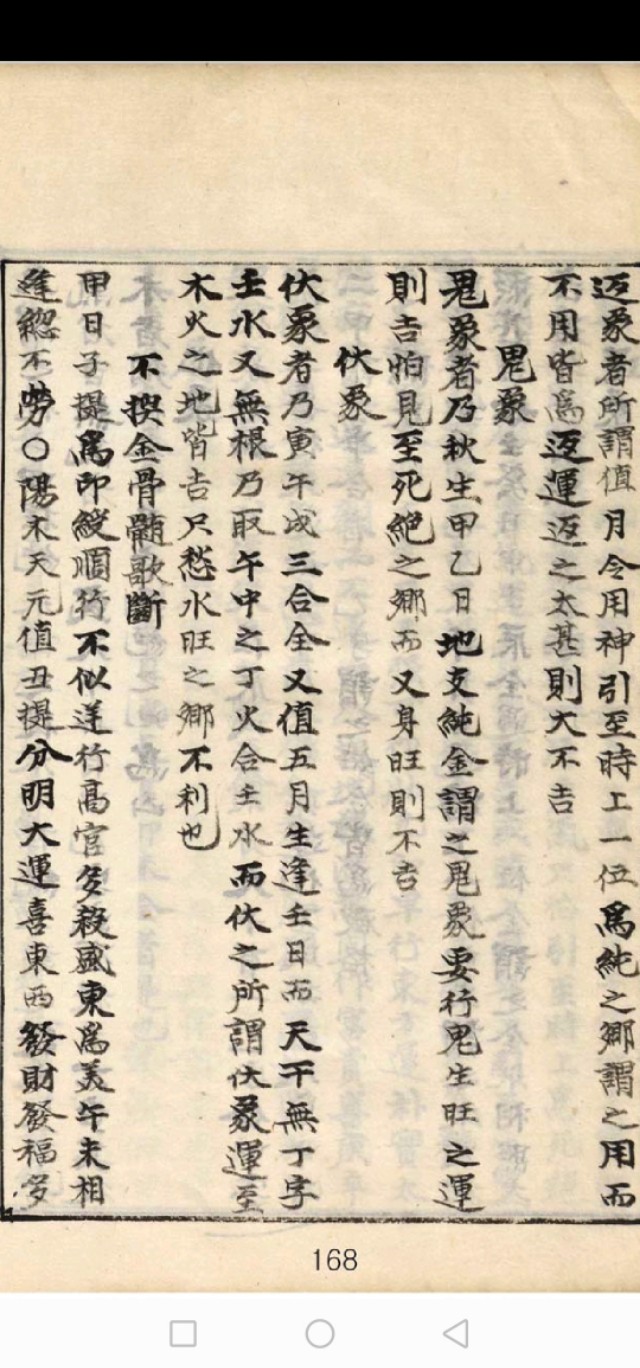 返象者所謂値月令用神引至時上一位為純之鄉謂之用而
不用皆為返運返之太甚則大不吉
鬼象
鬼象者乃秋生甲乙日地支純金謂之鬼象要行鬼生旺之運
則吉怕見至死絕之鄉而又身旺則不吉
伏象
伏象者乃寅午戌三合全又值五月生逢壬日而天干無丁字
壬水又無根乃取午中之丁火合壬水而伏之所謂伏象運至
木火之地皆吉只愁水旺之鄉不利也
不換金骨髓歌斷
甲日子提為印綬順行不似逆行高官多殺盛東為美午未相
逢總不勞○陽木天元值丑提分明大運喜東西發財發福多
168